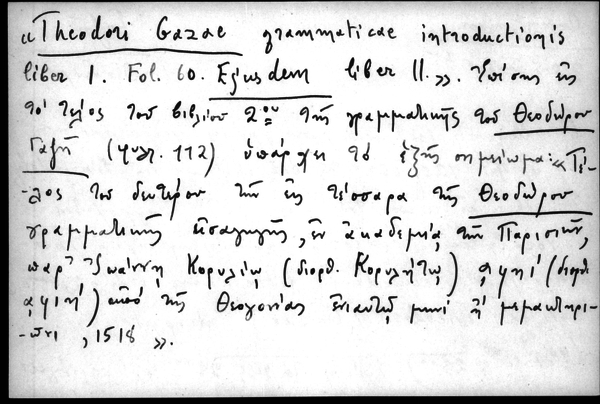 «Theodori Gazae grammaticae introductionis
liber I. Fol. 60. Ejusdem liber II.». Ἐπίσης εἰς
τὸ τέλος τοῦ βιβλίου 2ου τῆς γραμματικῆς τοῦ Θεοδώρου
Γαζῆ (φυλ. 112) ὑπάρχει τὸ ἑξῆς σημείωμα: «Τέ-
-λος τοῦ δευτέρου τῶν εἰς τέσσαρα τῆς Θεοδώρου
γραμματικῆς εἰσαγωγῆς, ἐν ἀκαδεμίᾳ τῶν Παρισίων,
παρ' Ἰωάννῃ Κορυλίῳ (διορθ. Κορυλήτῳ) αφιηʹ (διορθ
αφιηʹ) ἀπὸ τῆς Θεογονίας ἐνιαυτῷ μηνὶ ἢ μεμακτηρι-
-ῶνι, 1518 ».